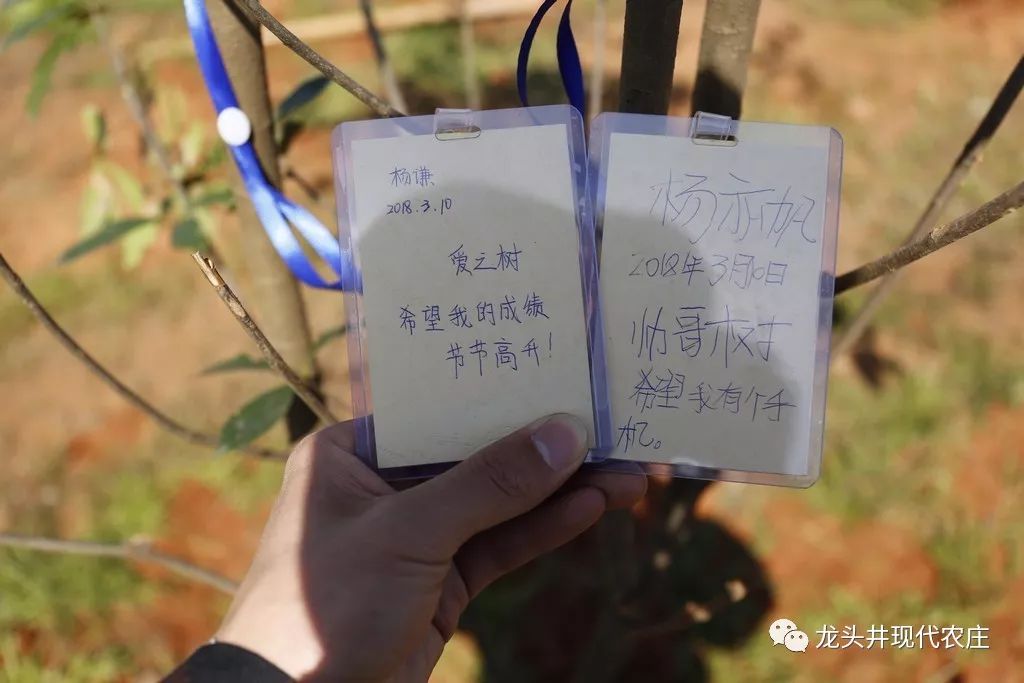 杨谦
2018.3.10
爱之树
希望我的成绩
节节高升！
杨亦帆
2018年3月10日
帅哥树
希望我有个手
机。
龙头井现代农庄